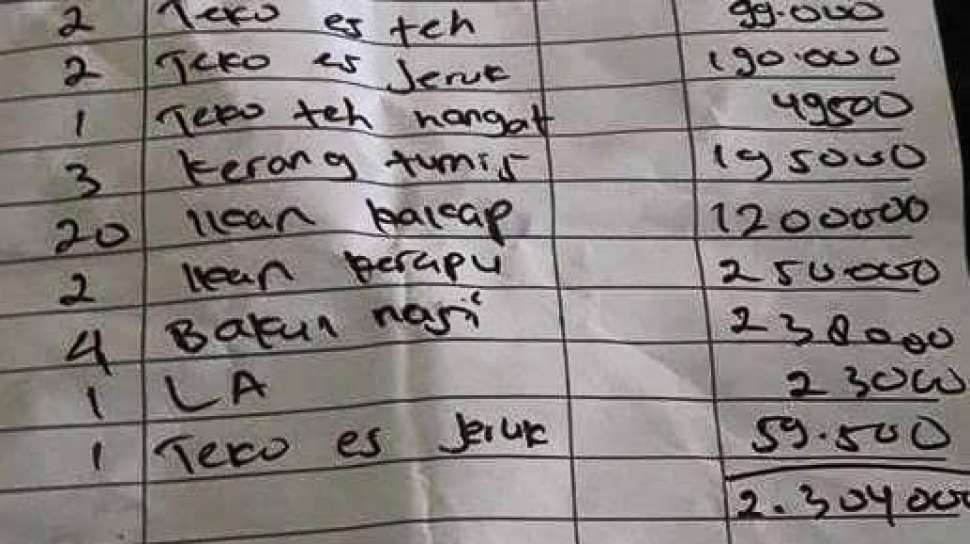 2 Teko es teh 99.000
2 Teko es Jeruk 190.000
1 Teko teh hangat 49500
3 Kerang tumis 195000
20 Ikan kakap 1200000
2 Ikan kerapu 250.000
4 Bakul nasi 238000
1 LA 23000
1 Teko es Jeruk 59.500
2.304000